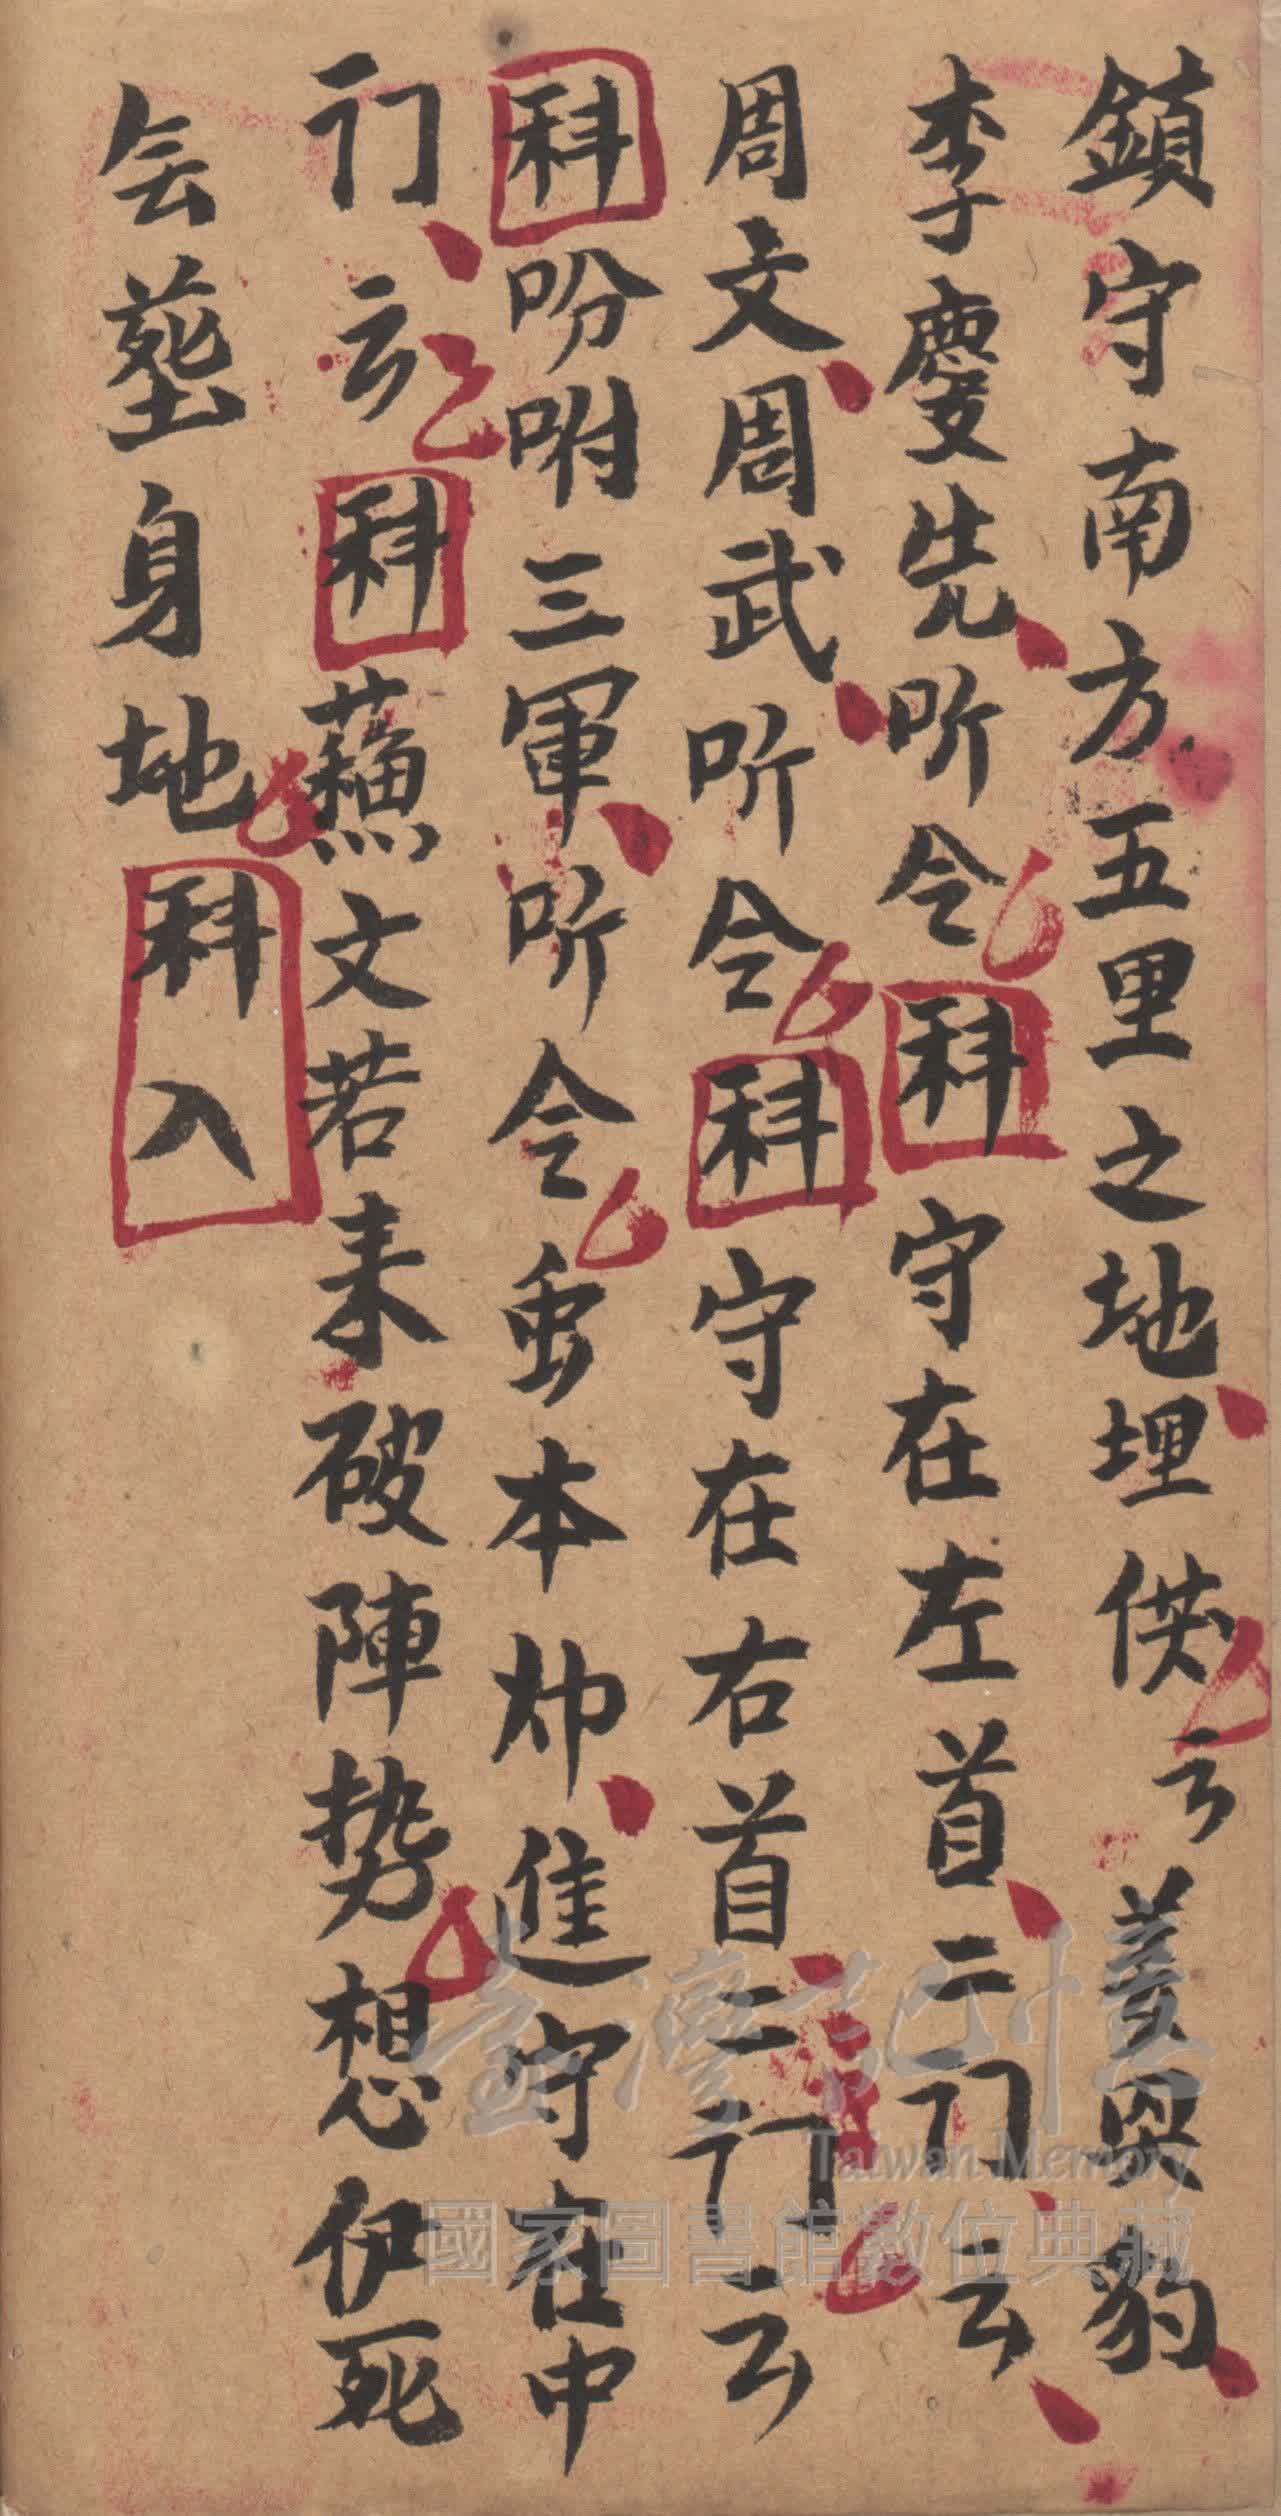 鎮守南方五里之地埋伏云姜興豹
李慶先听令科守在左首二门云
周文周武听令科守在右首二门云
科吩咐三軍听令重本帅進守在中
门云科蘓文若来破陣势想伊死
会塟身地科入
臺灣記憶
Taiwan Memory
國家圖書館數位典藏